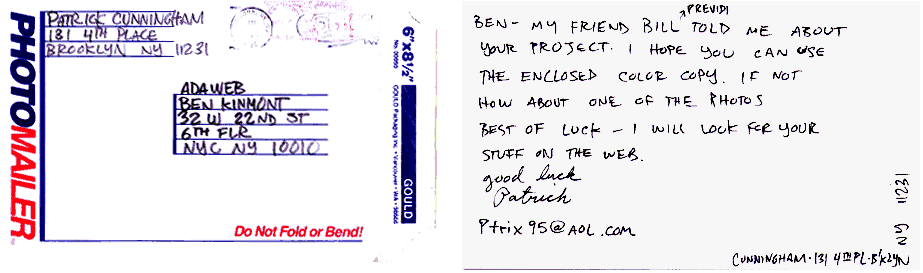 PHOTOMAILER
PATRICK CUNNINGHAM
131 4TH PLACE
BROOKLYN NY 11231
ADAWEB
BEN KINMONT
32 W 22ND ST
6TH FLR
NYC NY 10010
6"x8½"
GOULD
Do Not Fold or Bend!
BEN - MY FRIEND BILL PREVIDI TOLD ME ABOUT
YOUR PROJECT. I HOPE YOU CAN USE
THE ENCLOSED COLOR COPY. IF NOT
HOW ABOUT ONE OF THE PHOTOS
BEST OF LUCK - I WILL LOOK FOR YOUR
STUFF ON THE WEB.
good luck
Patrick
Ptrix95@AOL.COM
CUNNINGHAM · 131 4TH PL · B'KLYN
NY 11231